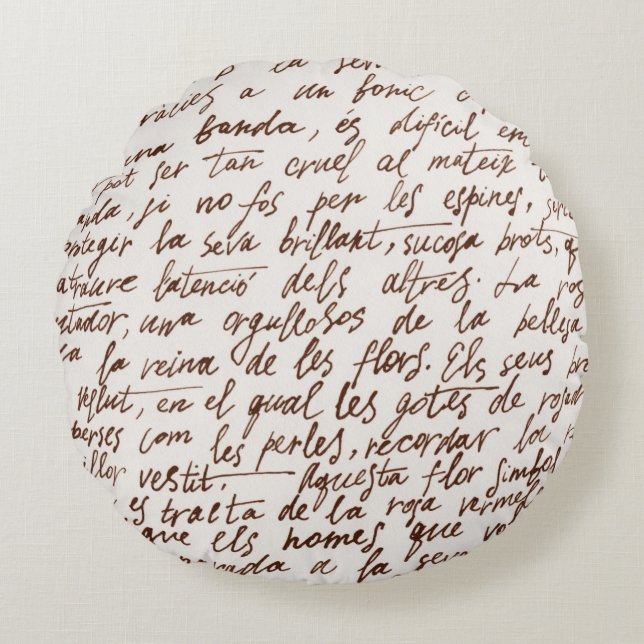 la sev
gràcies a un fonic
una banda, és difícil em
pot ser tan cruel al mateix
anda, si no fos per les espines,
protegir la seva brillant, sucosa brots, q
atraure l'atenció dels altres. La ros
ntador, una orgullosos de la bellesa
la reina de les flors. Els seus pe
vellut, en el qual les gotes de rosad
perses com les perles, recordar la
illor vestit. Aquesta flor simbol
es tracta de la rosa vermel
que els homes que vos
morada a la seva